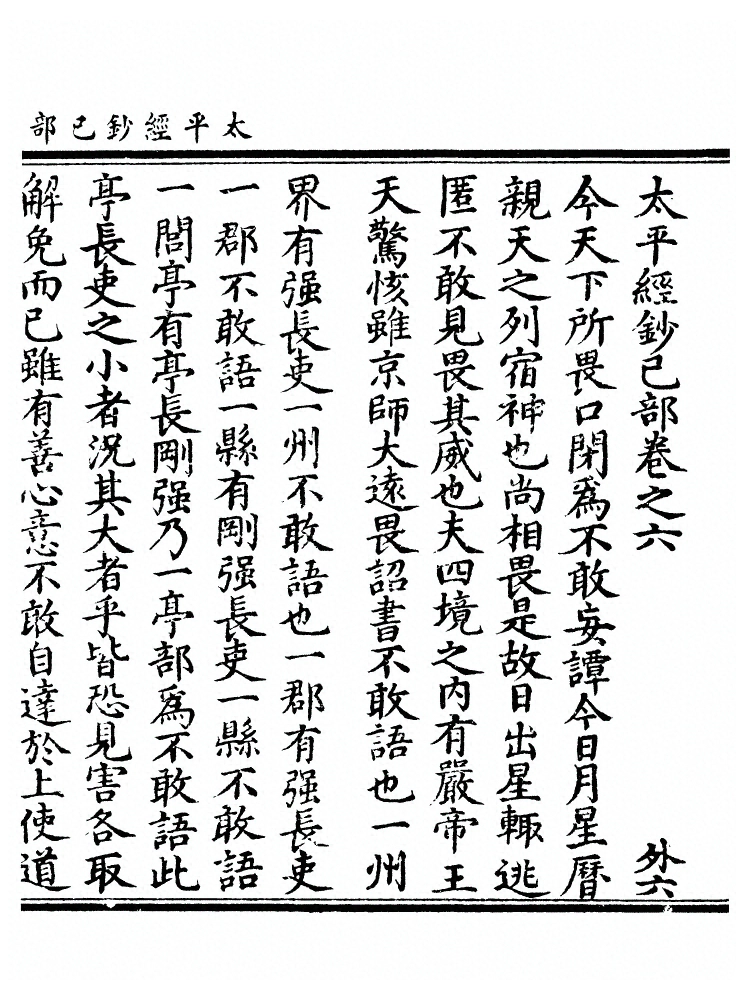 太平經鈔已部
太平經鈔己部卷之六　外六
今天下所畏口閉爲不敢妄譚今日月星曆
親天之列宿神也尚相畏是故日出星輙逃
匿不敢見畏其威也夫四境之内有嚴帝王
天驚惊雖京師大遠畏詔書不敢語也一州
界有强長吏一州不敢語也一郡有强長吏
一郡不敢語一縣有剛强長吏一縣不敢語
一閭亭有亭長剛强乃一亭部爲不敢語此
亭長吏之小者況其大者乎皆恐見害各取
解免而已雖有善心意不敢自達於上使道